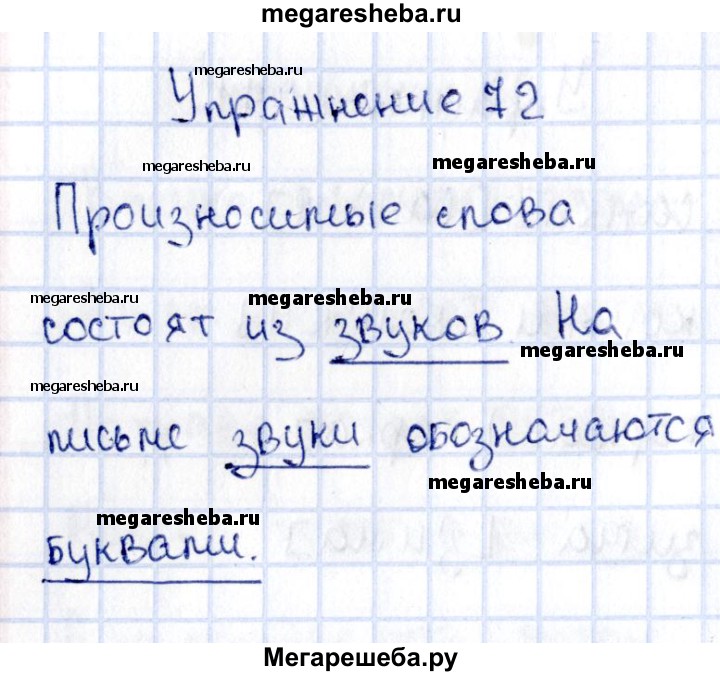 megaresheba.ru
megaresheba.ru
Упражнение 72
megaresheba.ru megaresheba.ru
Произносимые слова
megaresheba.ru megaresheba.ru
состоят из звуков. На
megaresheba.ru
megaresheba.ru
письме звуки обозначаются
megaresheba.ru
megaresheba.ru
буквами.
megaresheba.ru
Мегарешеба.ру